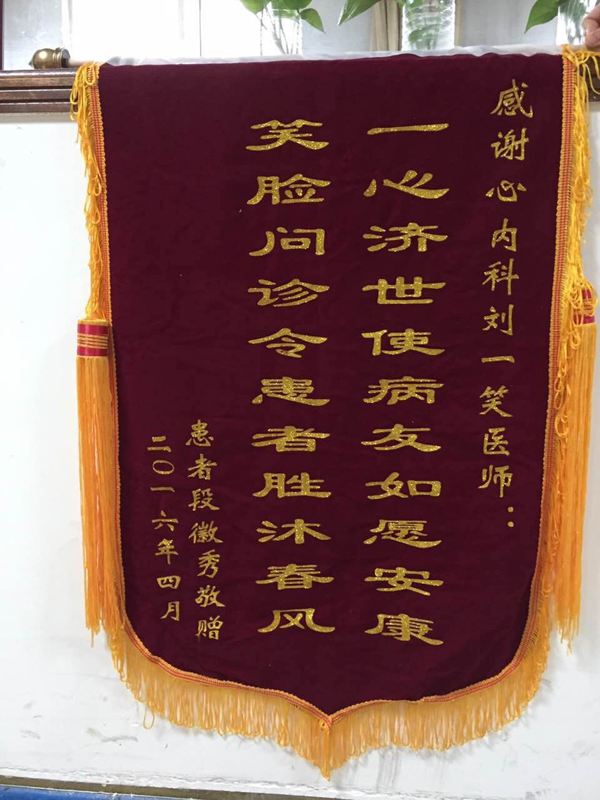 感谢心内科刘一笑医师：
一心济世使病友如愿安康
笑脸问诊令患者胜沐春风
患者段徽秀敬赠
二〇一六年四月